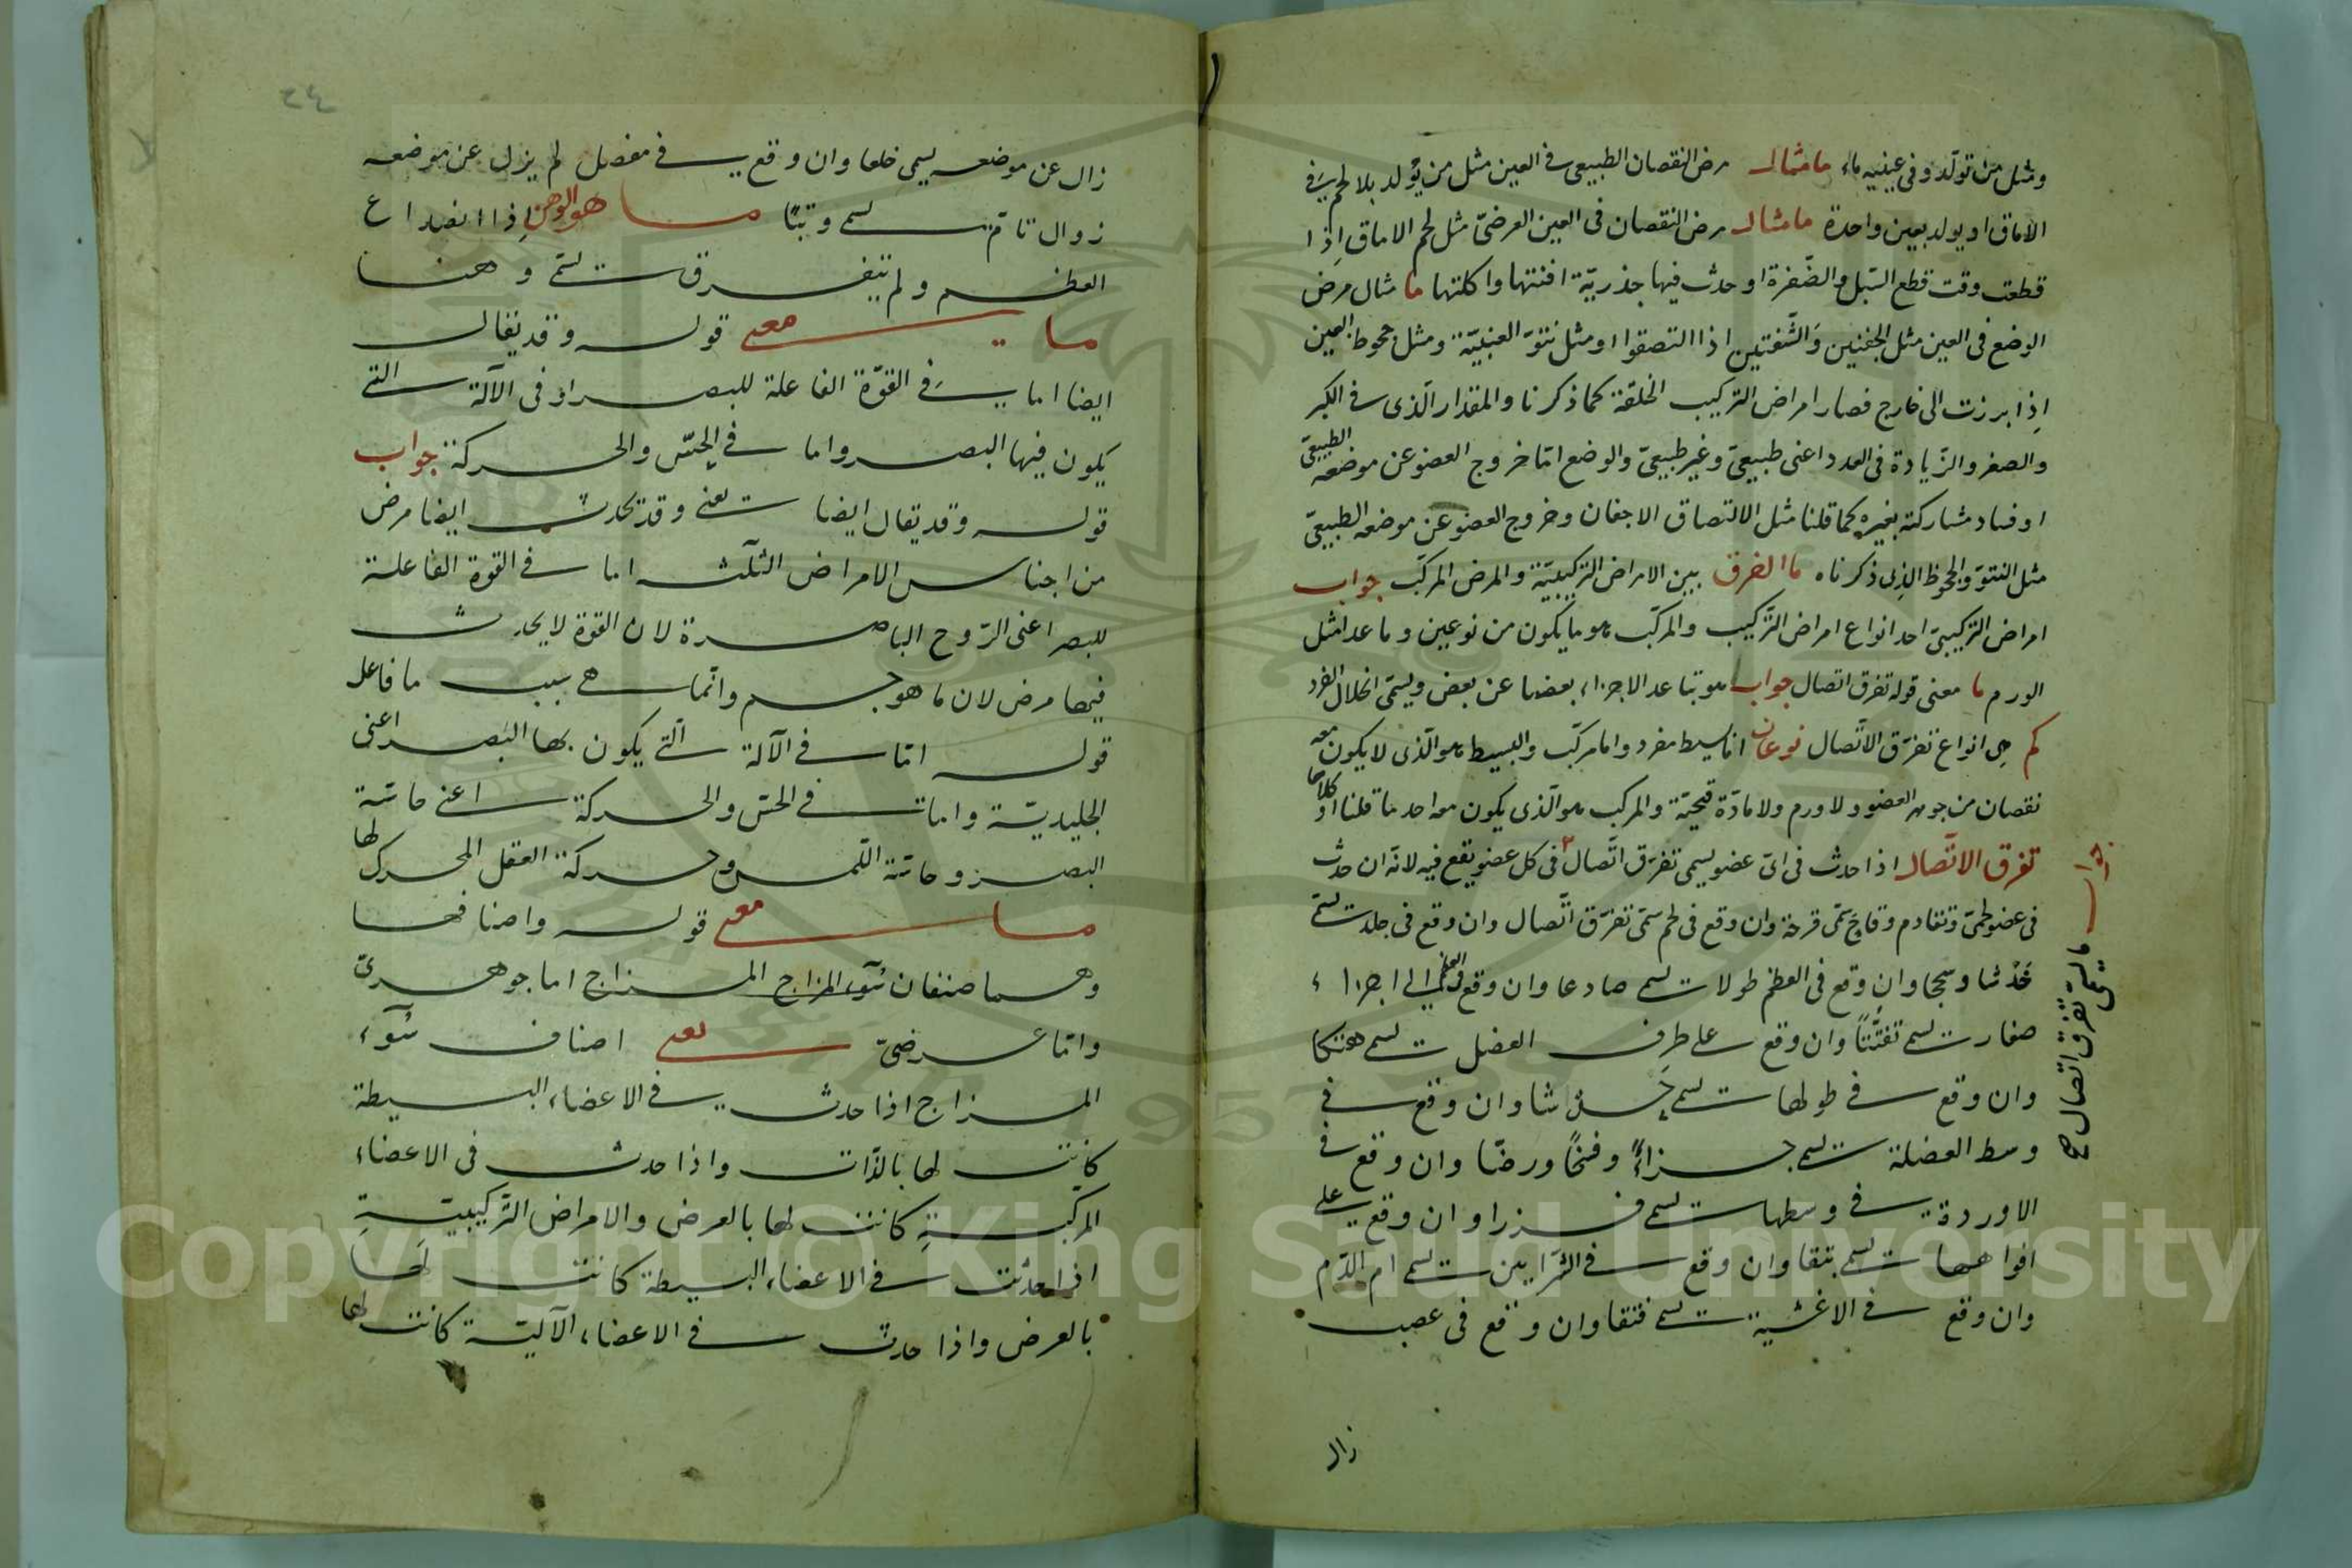 ومثل من تولد وفى عينيه ماء ما مثال مرض النقصان الطبيعى فى العين مثل من يولد بلا لحم فى
الاماق او يولد بعين واحدة ما مثال مرض النقصان فى العين العرضىّ مثل لحم الاماق اذا
قطعت وقت قطع السّبل والضّفرة او حدث فيها جذريّة افنتها واكلتها ما مثال مرض
الوضع فى العين مثل الجفنين والشّفتين اذا التصقوا او مثل نتوّ العنبيّة ومثل جحوظ العين
اذا برزت الى خارج فصار امراض التركيب الخلقة كما ذكرنا والمقدار الّذى فى الكبر
والصغر والزّيادة فى العدد اعنى طبيعىّ وغير طبيعىّ والوضع امّا خروج العضو عن موضعه الطبيعىّ
او فساد مشاركته بغيره كما قلنا مثل الالتصاق الاجفان وخروج العضو عن موضعه الطبيعىّ
مثل النتوّ والجحوظ الذى ذكرناه ما الفرق بين الامراض التركيبيّة والمرض المركّب جواب
امراض التركيبىّ احد انواع امراض التّركيب والمركّب هو ما يكون من نوعين وما عدا مثل
الورم ما معنى قوله تفرق اتصال جواب هو تباعد الاجزاء بعضها عن بعض ويسمّى انحلال الفرد
كم هى انواع تفرّق الاتّصال نوعان امّا بسيط مفرد واما مركّب والبسيط هو الّذى لا يكون معه
نقصان من جوهر العضو ولا ورم ولا مادّة قيحيّة والمركب هو الّذى يكون معه احد ما قلنا او كلاهما
تفرق الاتّصال اذا حدث فى اىّ عضو يسمى تفرّق اتّصال فى كل عضو يقع فيه لانّه ان حدث
فى عضو لحمىّ وتقادم وقاح سمّى قرحة وان وقع فى لحم سمّى تفرّق اتّصال وان وقع فى جلد يسمّى
خدشا وسحجا وان وقع فى العظم طولا يسمى صادعا وان وقع فى العظم الى اجزاء
صغار يسمى تفتّتاً وان وقع على طرف العضل يسمى هتكا
وان وقع فى طولها يسمى خدشا وان وقع فى
وسط العضلة يسمى جزاءً وفسخًا ورضّا وان وقع فى
الاوردة فى وسطها يسمى فزرا وان وقع على
افواهها يسمى بثقا وان وقع فى الشّرايين يسمى ام الدّم
وان وقع فى الاغشية يسمى فتقا وان وقع فى عصب
زال
جواب ما معنى تفرق اتصال صح
٢٤
زال عن موضعه يسمى خلعا وان وقع فى مفصل لم يزل عن موضعه
زوال تامّ يسمى وثبًا ما هو الوهن اذا انصداع
العظم ولم يتفرق يسمّى وهنا
ما معنى قوله وقد يقال
ايضا اما فى القوّة الفاعلة للبصر او فى الآلة التى
يكون فيها البصر واما فى الحسّ والحركة جواب
قوله وقد يقال ايضا يعنى وقد تحدث ايضا مرض
من اجناس الامراض الثلٰثه اما فى القوة الفاعلة
للبصر اعنى الرّوح الباصرة لان القوة لا يحدث
فيها مرض لان ما هو جسم وانّما هى سبب ما فاعل
قوله امّا فى الآلة الّتى يكون بها البصر اعنى
الجليديّة واما فى الحسّ والحركة اعنى حاسّة
البصر وحاسّة اللّمس وحركة العقل المحرك لها
ما معنى قوله واصنافها
وهما صنفان سوء المزاج المزاج اما جوهرىّ
وامّا عرضىّ يعنى اصناف سوء
المزاج اذا حدث فى الاعضاء البسيطة
كانت لها بالذّات واذا حدث فى الاعضاء
المركّبة كانت لها بالعرض والامراض التّركيبيّة
اذا حدثت فى الاعضاء البسيطة كانت لها
بالعرض واذا حدث فى الاعضاء الآليّة كانت لها
Copyright © King Saud University